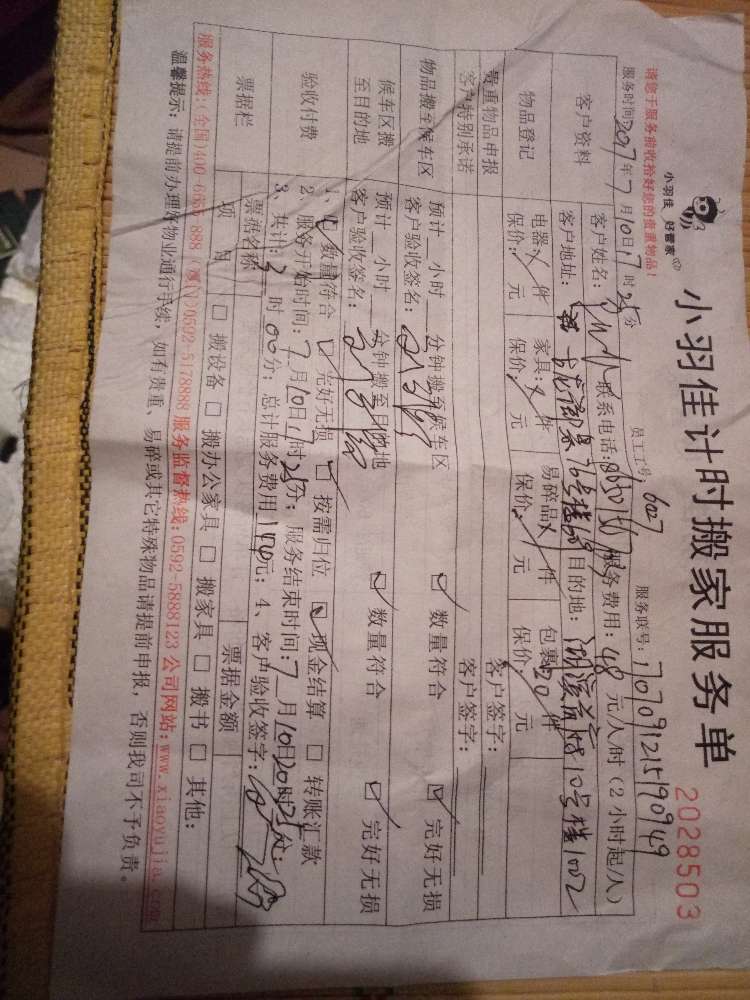 请您于服务前收拾好您的贵重物品!
小羽佳 好管家
小羽佳计时搬家服务单
2028503
服务时间: 2017年7月10日17时25分 员工工号: 6027 服务联号:
客户资料 客户姓名: 联系电话: 服务费用: 48元/人/时 (2小时起/人)
客户地址: 目的地: 10号楼1002
物品登记 电器: 件 家具: 件 易碎品 件 包裹 20件
保价: 元 保价: 元 保价: 元 保价: 元
贵重物品申报 客户签字:
客户特别承诺 客户签字:
物品搬至候车区 预计 小时 分钟搬至候车区
客户验收签名: ☑ 数量符合 ☑ 完好无损
候车区搬至目的地 预计 小时 分钟搬至目的地
客户验收签名: ☑ 数量符合 ☑ 完好无损
验收付费 1、☑ 数量符合 ☑ 完好无损 ☑ 按需归位 ☑ 现金结算 □ 转账汇款
2、服务开始时间: 7月10日17时25分; 服务结束时间: 7月10日20时25分;
3、共计: 3时00分; 总计服务费用 元; 4、客户验收签字:
票据栏 票据名称 票据金额
项 目 □ 搬设备 □ 搬办公家具 □ 搬家具 □ 搬书 □ 其他:
服务热线:(全国)400-6666-888 (厦门)0592-5178888 服务监督热线: 0592-5888123 公司网站: www.xiaoyujia.com
温馨提示: 请提前办理好物业通行手续, 如有贵重、易碎或其它特殊物品请提前申报, 否则我司不予负责。